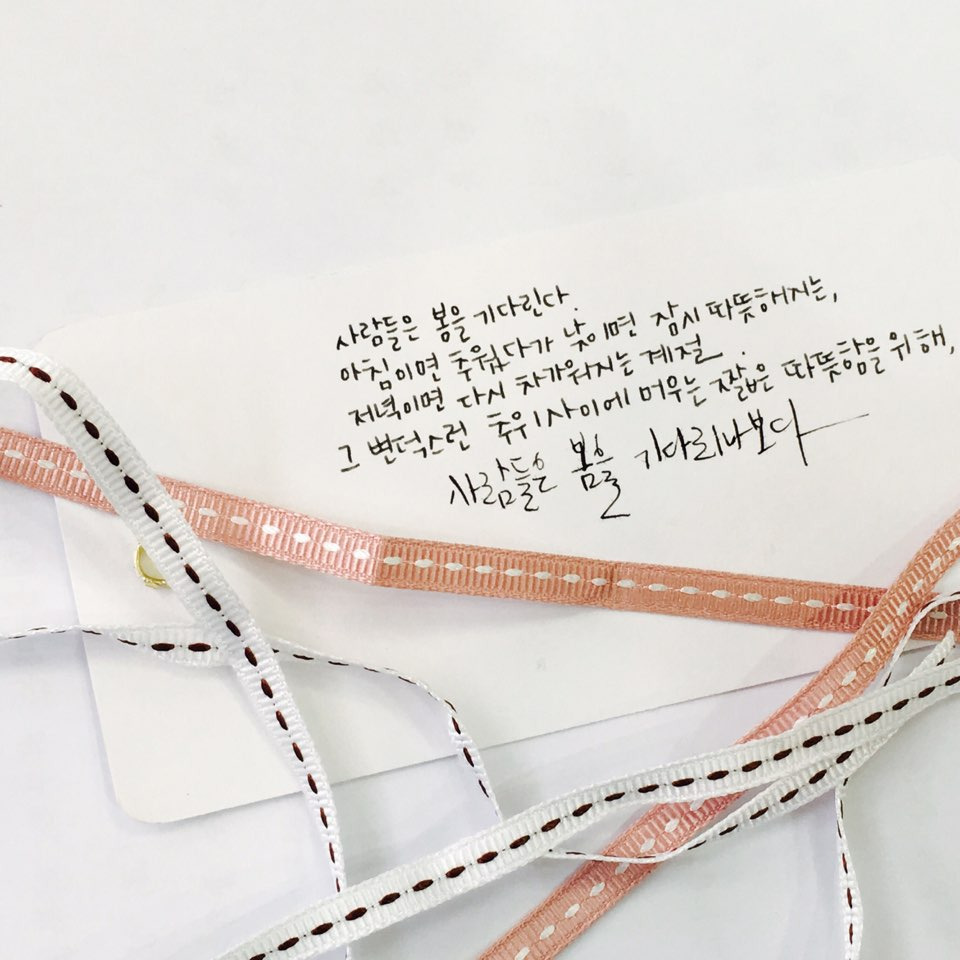 사람들은 봄을 기다린다.
아침이면 추웠다가 낮이면 잠시 따뜻해지는,
저녁이면 다시 차가워지는 계절.
그 변덕스런 추위 사이에 머무는 짧은 따뜻함을 위해,
사람들은 봄을 기다리나보다